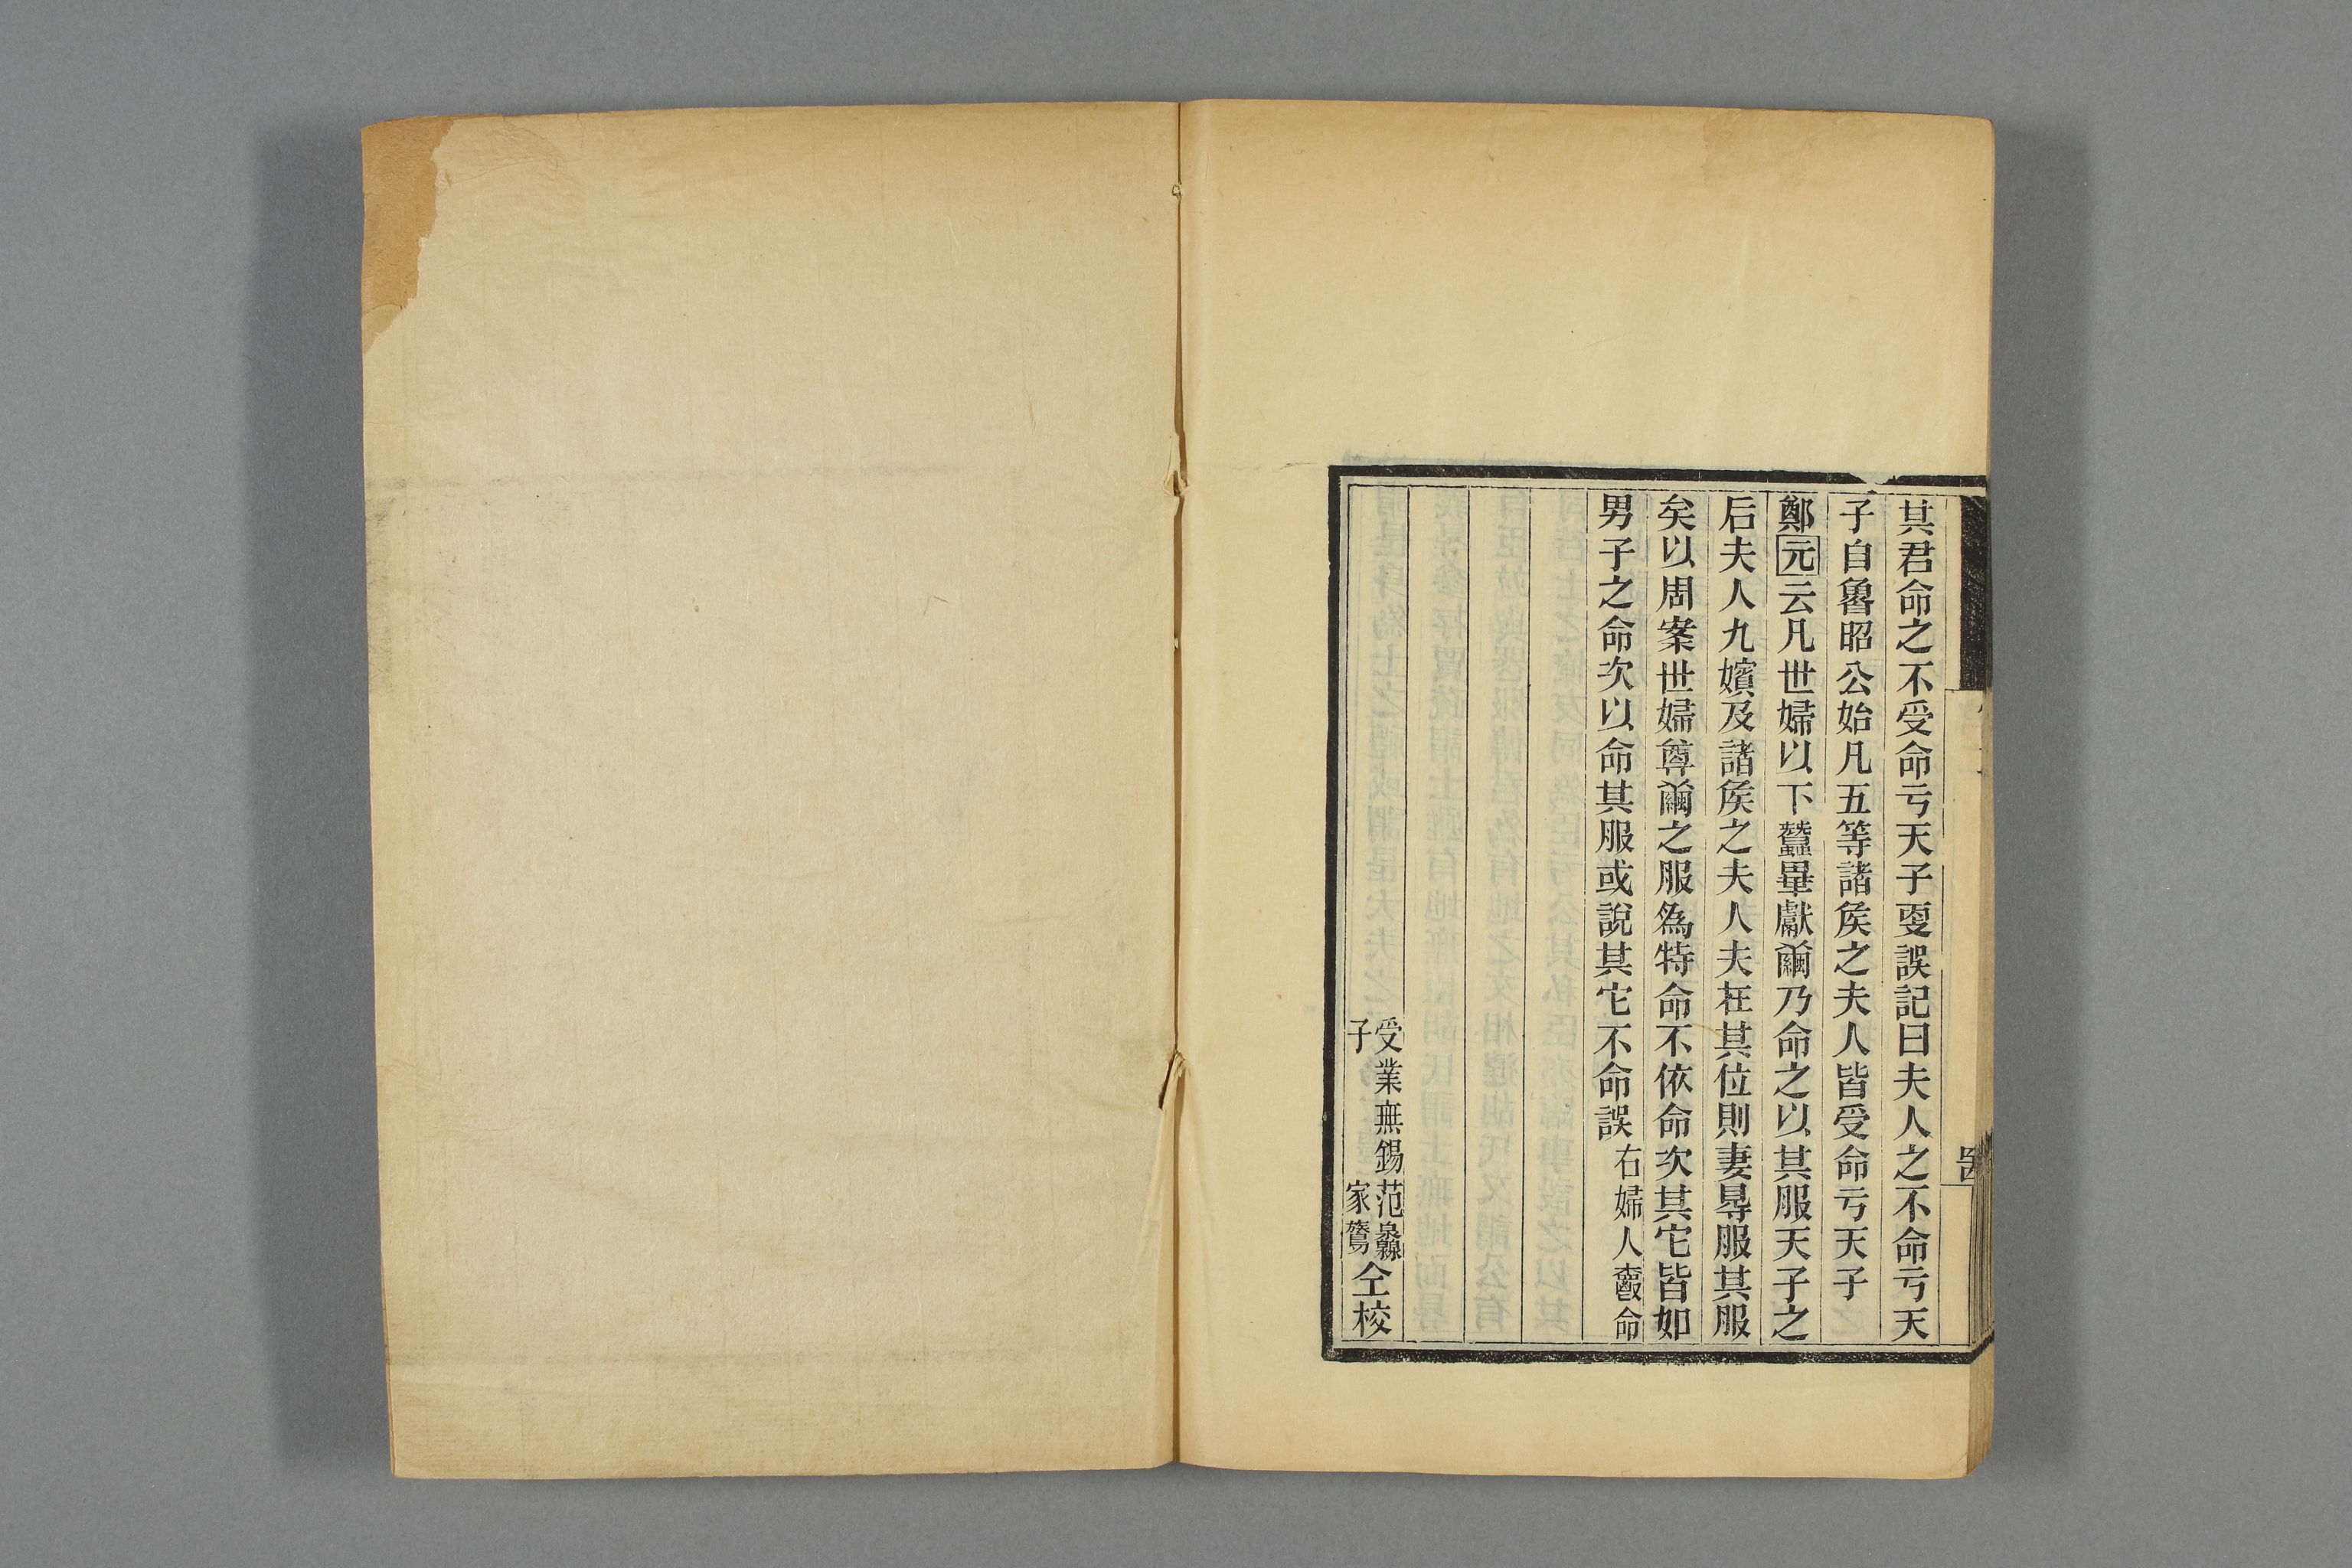 其君命之不受命亏天子㪅誤記曰夫人之不命亏天
子自魯昭公始凡五等諸矦之夫人皆受命亏天子
鄭元云凡世婦以下蠶畢獻繭乃命之以其服天子之
后夫人九嬪及諸矦之夫人夫在其位則妻㝵服其服
矣以周案世婦尊繭之服為特命不依命次其它皆如
男子之命次以命其服或說其它不命誤
右婦人 命
受業無錫范
子家
仝校